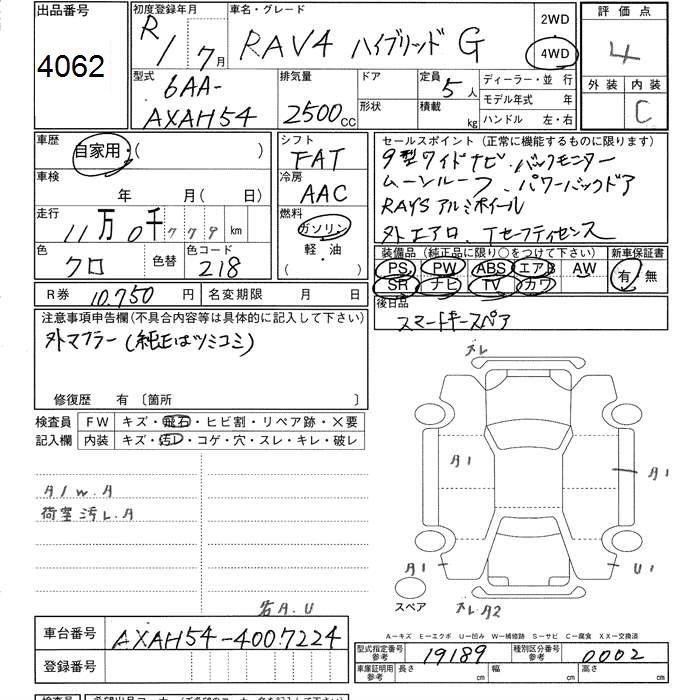 出品番号
4062
初度登録年月
R 1 / 7月
車名・グレード
RAV4 ハイブリッド G
2WD
4WD
評価点
4
外装 内装
C
型式
6AA-
AXAH54
排気量
2500cc
ドア
形状
定員
5人
積載
kg
ディーラー・並行
モデル年式 年
ハンドル 左・右
車歴
自家用・( )
車検
年 月( 日)
走行
11万0千779km
色
クロ
色替
色コード
218
シフト
FAT
冷房
AAC
燃料
ガソリン
軽・油
( )
セールスポイント(正常に機能するものに限ります)
9型ワイドナビ・バックモニター
ムーンルーフ・パワーバックドア
RAYSアルミホイール
外エアロ、Tセーフティセンス
装備品(純正品に限り○をつけて下さい)
PS PW ABS エアB AW
SR ナビ TV カワ
新車保証書
有・無
R券 10,750円
名変期限 月 日
後日品
スマートキースペア
注意事項申告欄(不具合内容等は具体的に記入して下さい)
外マフラー(純正はツミコミ)
修復歴 有 〔箇所 〕
検査員
記入欄
FW キズ・飛石・ヒビ割・リペア跡・×要
内装 キズ・汚レ・コゲ・穴・スレ・キレ・破レ
A1W.A
荷室汚レ.A
各A.U
ズレ
A1
A1
A1
U1
スペア
ズレA2
A―キズ E―エクボ U―凹み W―補修跡 S―サビ C―腐食 XX―交換済
車台番号 AXAH54-4007224
登録番号
型式指定番号
参考
19189
種別区分番号
参考
0002
車庫証明用
参考
長さ
cm
幅
cm
高さ
cm
検査員